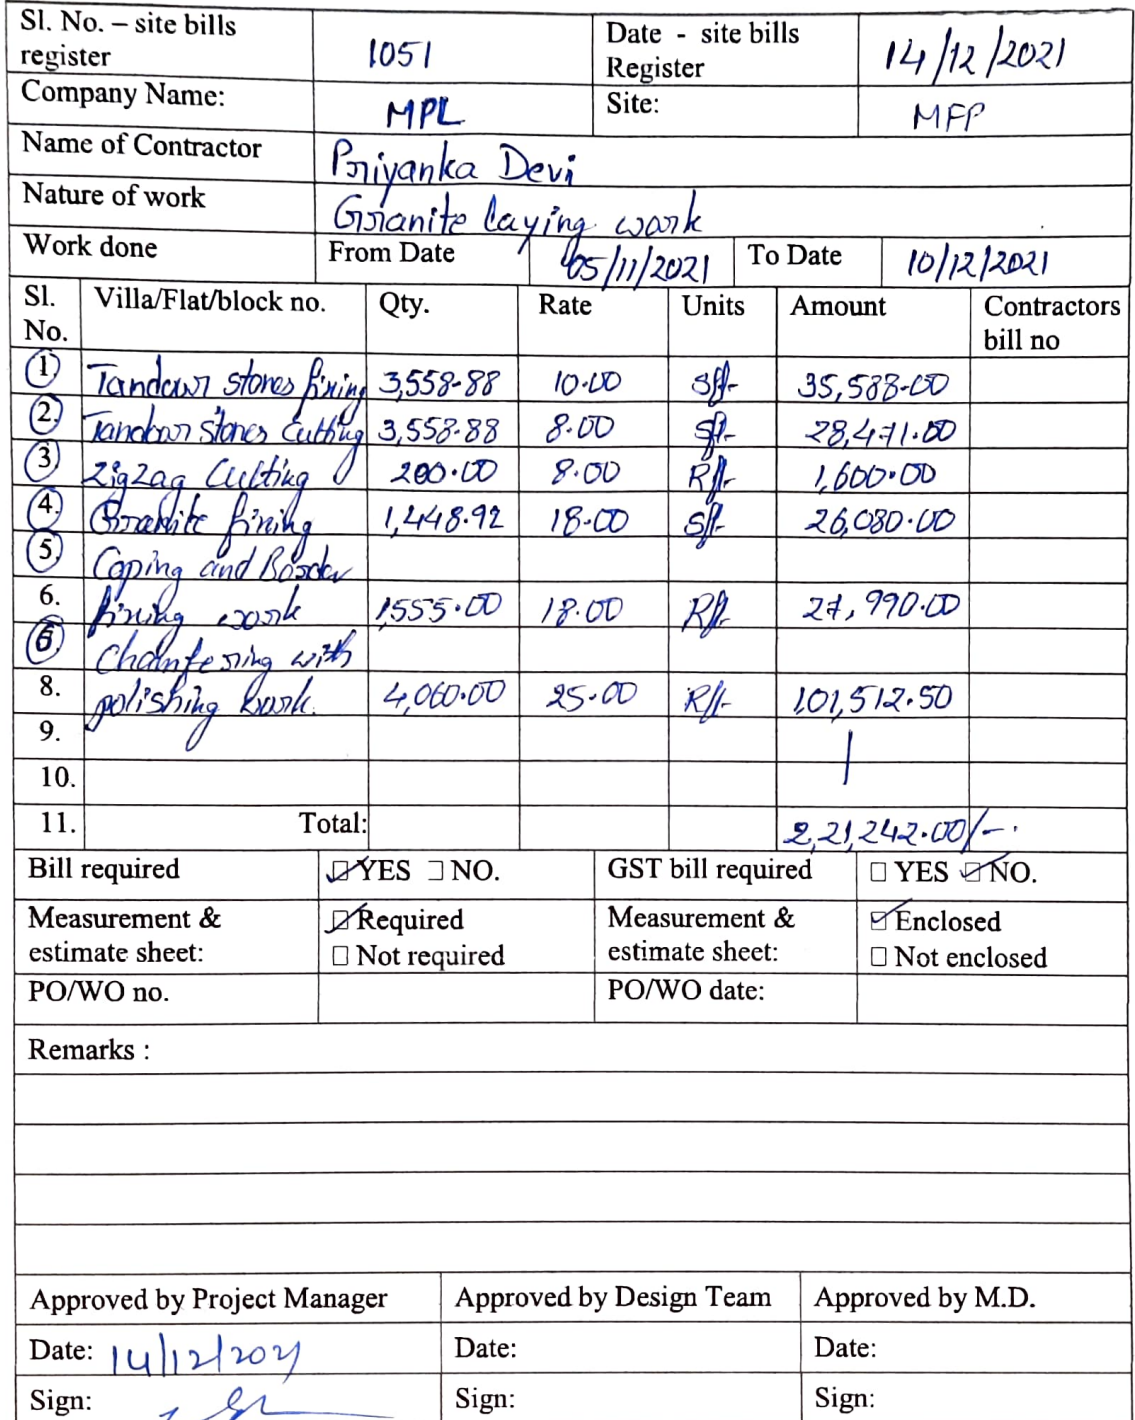 Sl. No. – site bills register 1051 Date - site bills Register 14/12/2021
Company Name: MPL Site: MFP
Name of Contractor Priyanka Devi
Nature of work Granite laying work
Work done From Date 05/11/2021 To Date 10/12/2021
Sl. No. Villa/Flat/block no. Qty. Rate Units Amount Contractors bill no
1 Tandowr stones fixing 3,558.88 10.00 Sft. 35,588.00
2. Tandowr stones Cutting 3,558.88 8.00 Sft. 28,471.00
3 ZigZag Cutting 200.00 8.00 Rft. 1,600.00
4. Granite fixing 1,448.92 18.00 Sft. 26,080.00
5. Coping and Border
6. fixing work 1,555.00 18.00 Rft. 27,990.00
6 Chamfering with
8. polishing work. 4,060.00 25.00 Rft. 1,01,512.50
9.
10.
11. Total: 2,21,242.00/-
Bill required YES NO. GST bill required YES NO.
Measurement & estimate sheet: Required Measurement & estimate sheet: Enclosed
Not required Not enclosed
PO/WO no. PO/WO date:
Remarks :
Approved by Project Manager Approved by Design Team Approved by M.D.
Date: 14/12/2021 Date: Date:
Sign: Sign: Sign: